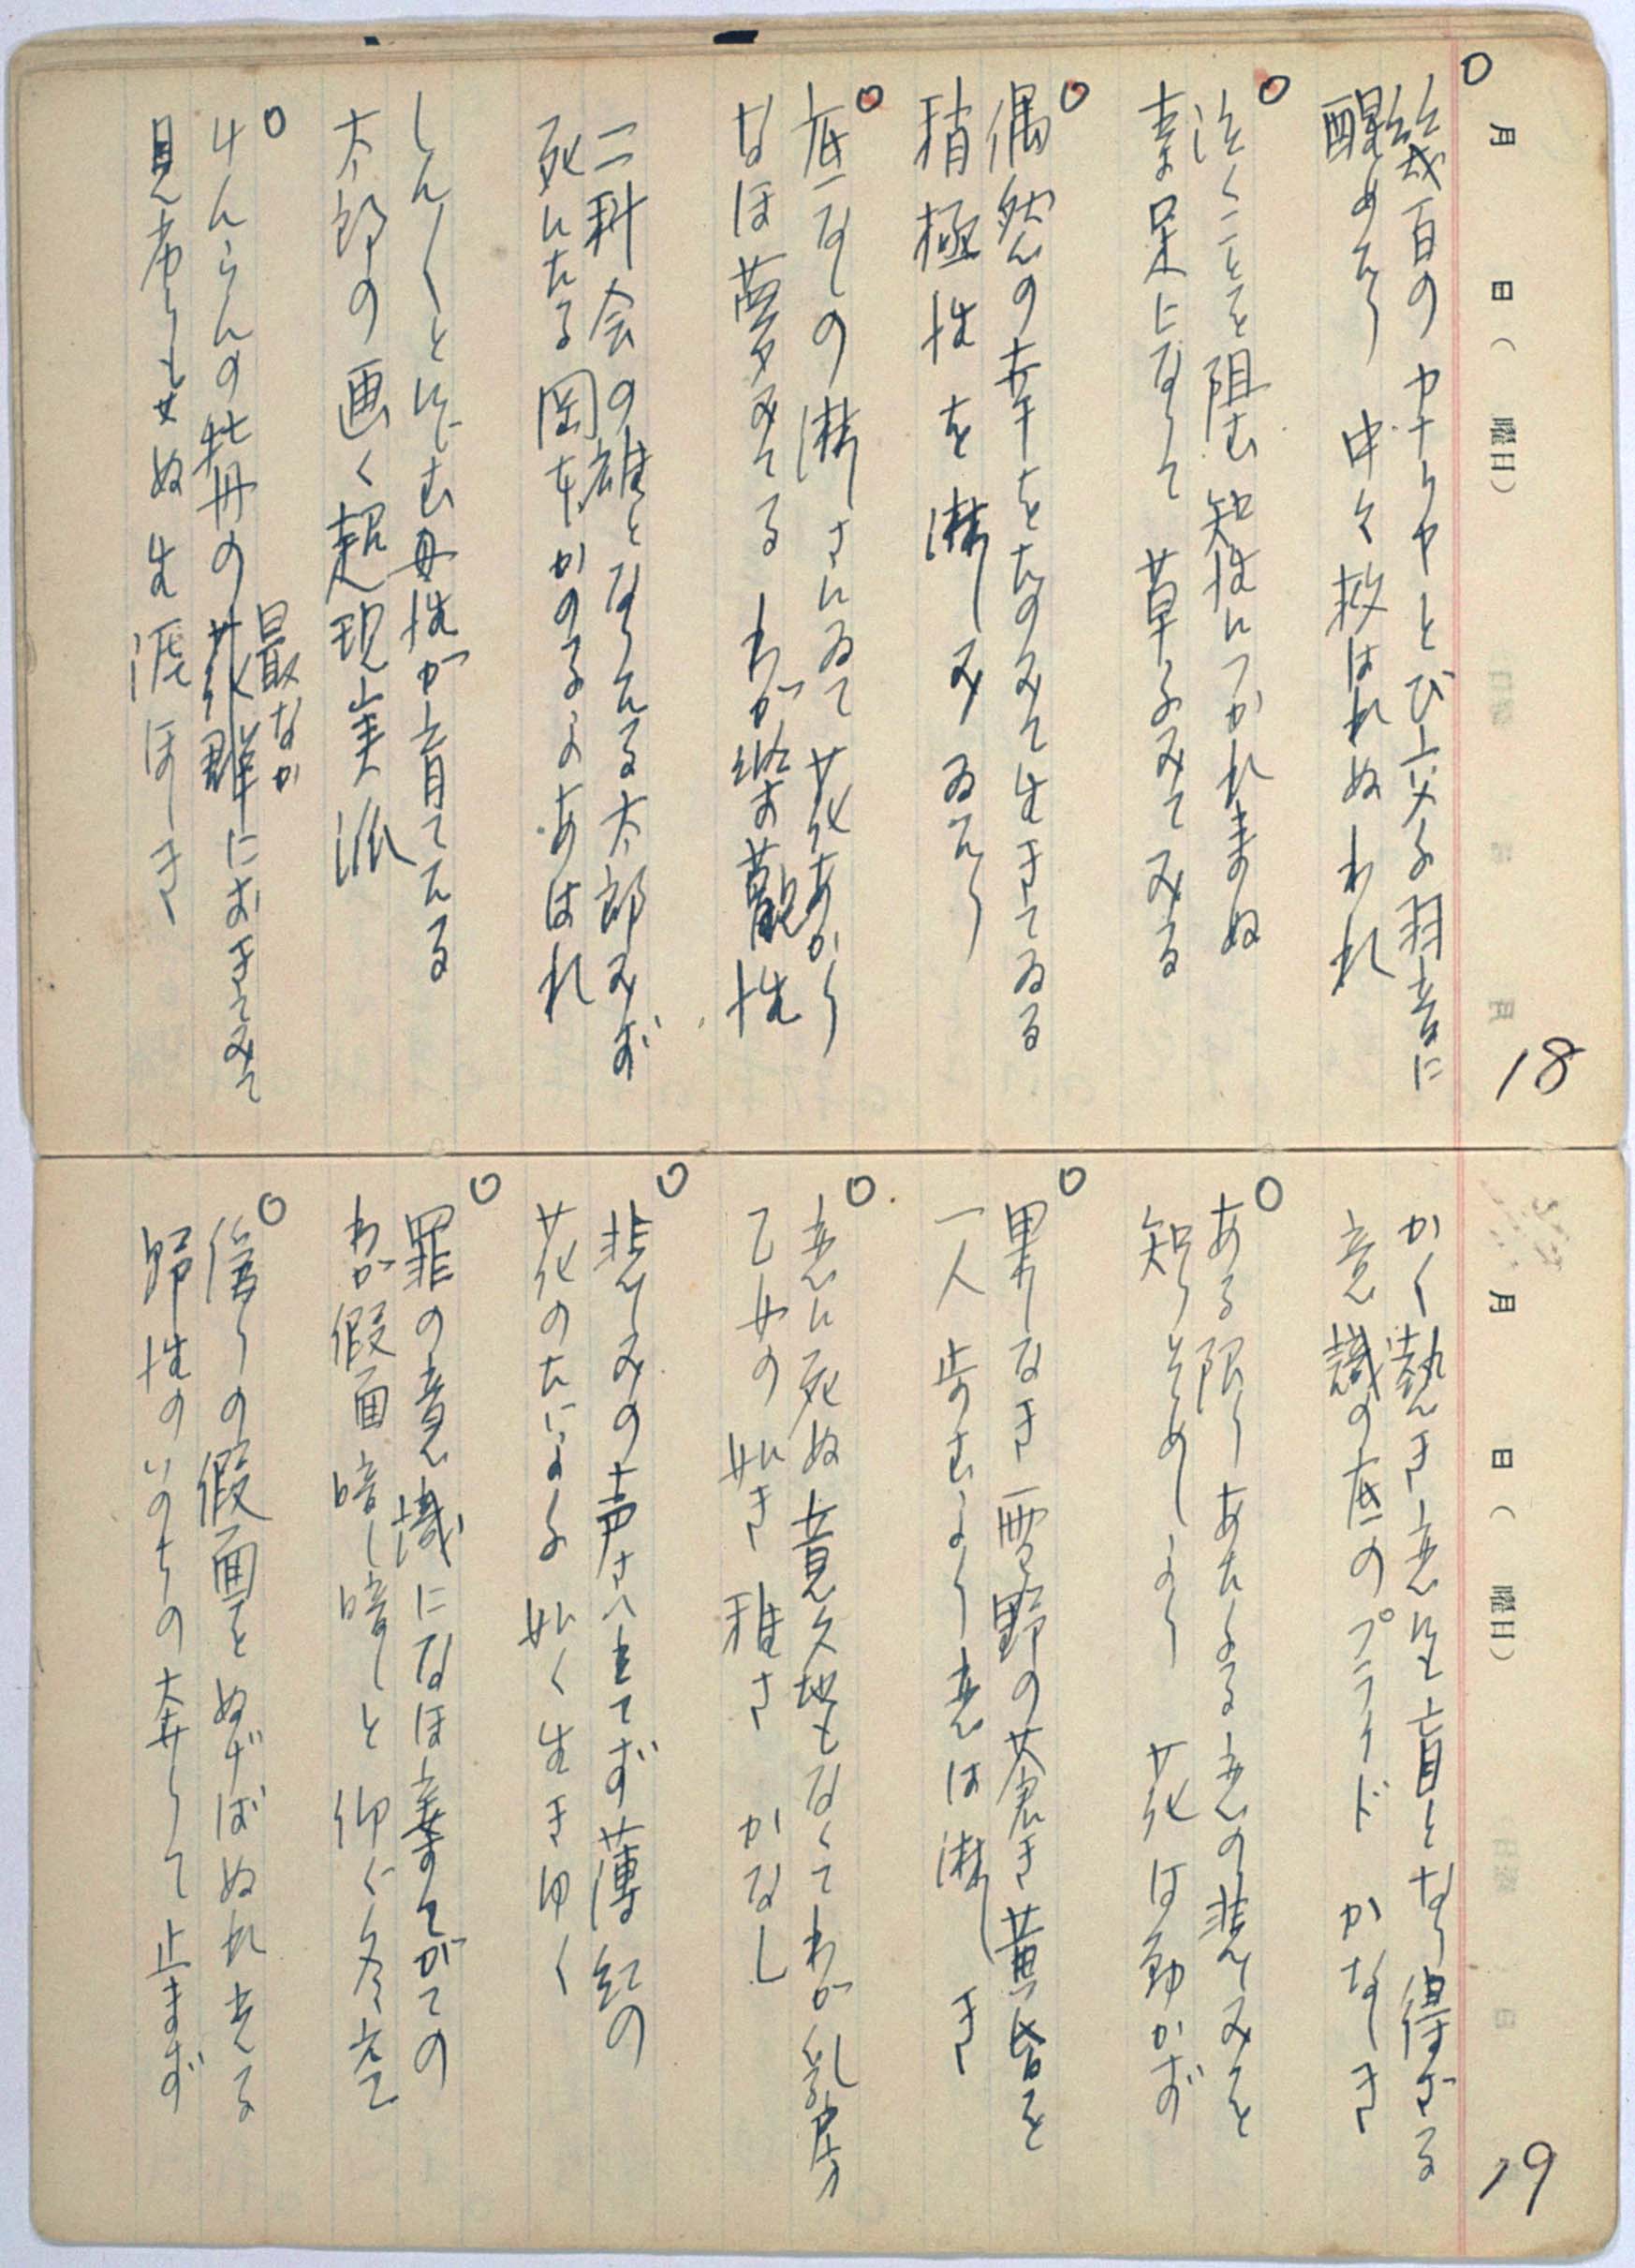 18
月 日( 曜日)
○
幾百のカナリヤとび交ふ羽音に
醒めたり 中々救はれぬわれ
○
泣くことを阻む知性につかれまぬ
素足になりて 草ふみてみる
○
偶然の幸をたのみて生きてゐる
稍極性を淋しみゐたり
○
底なしの淋しさにゐて花あかり
なほ夢みてる わが 観性
二科会の雄となりたる太郎みず
死にたる岡本かの子よあはれ
しんしんとにじむ母性が育てたる
太郎の画く超現実派
○
けんらんの牡丹の花群におきてみて
最なか
見劣りもせぬ生涯ほしき
19
月 日( 曜日)
かく熱き恋にも盲となり得ざる
意識の底のプライド かなしき
○
ある限りあたふる恋の悲しみを
知りそめしより 花は動かず
○
果しなき雪野の蒼き黄昏を
一人歩むより恋は淋しき
○
恋に死ぬ意久地もなくてわが乳房
乙女の如き稚さ かなし
○
悲しみの声さへ立てず薄紅の
花のたによふ如く生きゆく
○
罪の意識になほ棄てがての
わが仮面暗し暗しと仰ぐ冬空
○
偽りの假面をぬげばぬれ光る
野性のいのちの奔りて止まず